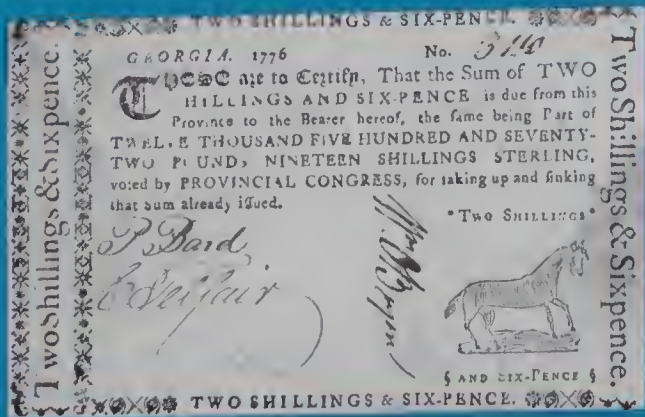 TWO SHILLINGS & SIX-PENCE.
Two Shillings & Sixpence.
GEORGIA. 1776 No.
THESE are to Certify, That the Sum of TWO
HILLINGS AND SIX-PENCE is due from this
Province to the Bearer hereof, the same being Part of
TWELVE THOUSAND FIVE HUNDRED AND SEVENTY-
TWO POUNDS NINETEEN SHILLINGS STERLING,
voted by PROVINCIAL CONGRESS, for taking up and sinking
that Sum already issued.
"TWO SHILLINGS"
P Bard
AND SIX-PENCE
TWO SHILLINGS & SIX-PENCE.
Two Shillings & Sixpence.